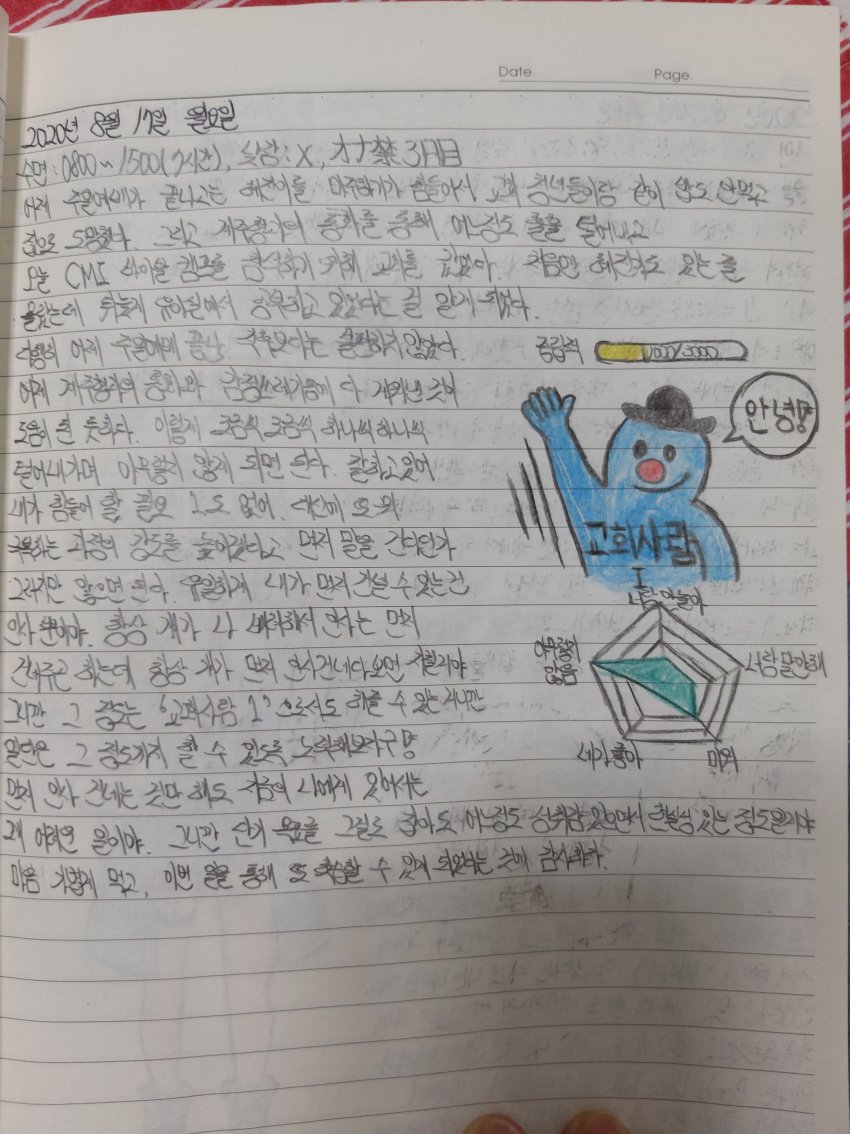 Date.
Page.
2020년 8월 17일 월요일
수면 : 0800~1500(7시간), 낮잠 : X, オナ禁 3日目
어제 주일예배가 끝나고는 혜진이를 마주하기가 힘들어서 교회 청년들이랑 같이 밥도 안먹고
집으로 도망쳤다. 그리고 계주형과의 통화를 통해 어느정도 훌훌 털어내고
오늘 CMI 바이블 캠프를 참석하기 위해 교회를 갔었다. 처음엔 혜진이도 있는 줄
몰랐는데 뒤늦게 유아실에서 공부하고 있었다는 걸 알게 되었다.
다행히 어제 주일예배 끝난 직후보다는 슬퍼하지 않았다.
어제 계주형과의 통화와 감정쓰레기통에 다 게워낸 것이
도움이 된 듯하다. 이렇게 조금씩 조금씩 하나씩 하나씩
털어내가며 아무렇지 않게 되면 된다. 잘하고있어
내가 힘들어 할 필요 1도 없어. 대신에 또
극복하는 과정의 강도를 높이겠다고 먼저 말을 건다던가
그러지만 않으면 된다. 유일하게 내가 먼저 건넬 수 있는건
인사 뿐이야. 항상 걔가 나 배려해서 인사는 먼저
건네주곤 하는데 항상 걔가 먼저 인사건네다보면 지칠거야
그치만 그 정도는 '교회사람 1'으로서도 해줄 수 있는거니깐
일단은 그 정도까지 할 수 있도록 노력해보자구 망
먼저 인사 건네는 것만 해도 지금의 나에게 있어서는
꽤 어려운 일이야. 그치만 단기 목표를 그걸로 잡아도 어느정도 성취감 있으면서 현실성 있는 정도일거야
마음 가볍게 먹고, 이번 일을 통해 또 학습할 수 있게 되었다는 것에 감사하자.
중립적 1000/3000
안녕망
교회사람
1
나랑 안놀아
아무렇지 않음
나랑 말안해
내가 좋아
미워